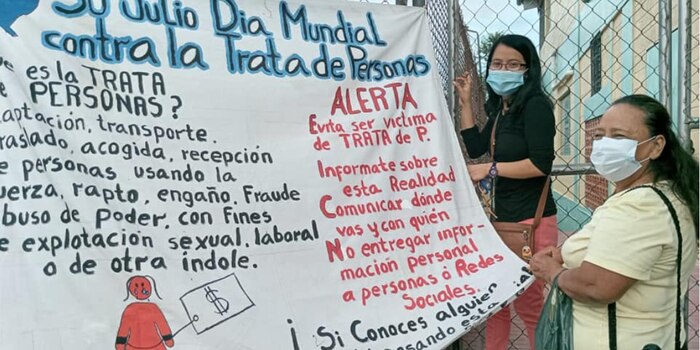 30 Julio Dia Mundial
contra la Trata de Personas
es la TRATA
PERSONAS?
aptación, transporte.
raslado, acogida, recepción
e personas usando la
uerza, rapto, engaño, Fraude
buso de Poder, con Fines
e explotación sexual, laboral
o de otra índole.
$
ALERTA
Evita ser víctima
de TRATA de P.
Informate sobre
esta Realidad
Comunicar dónde
vas y con quién
No entregar infor-
mación personal
a personas ó Redes
Sociales.
¡ Si Conoces alguien